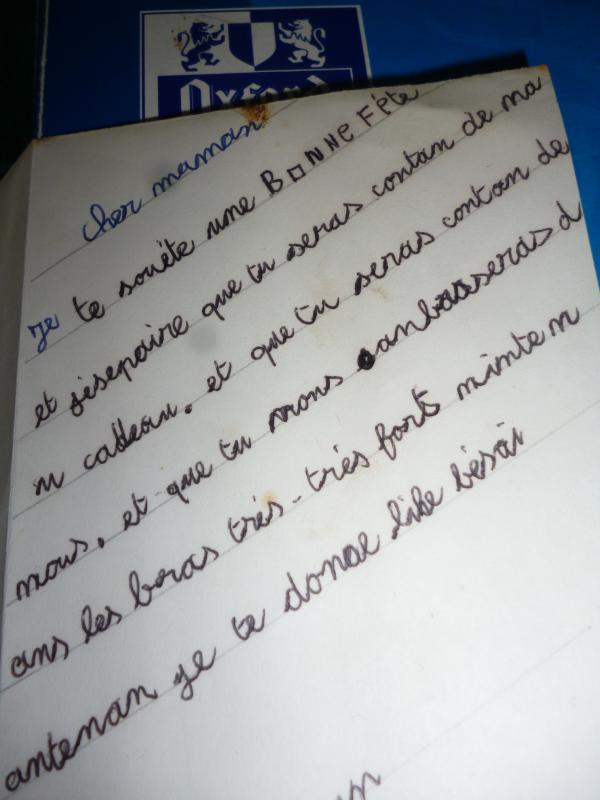 Oxford
cher maman
je te souéte une BONNE Fête
et jésepaire que tu seras contan de ma
m cadeau. et que tu seras contan de
nous. et que tu nous anbraseras d
ans les beras trés-trés forts mintem
antenan je te donne like bésài